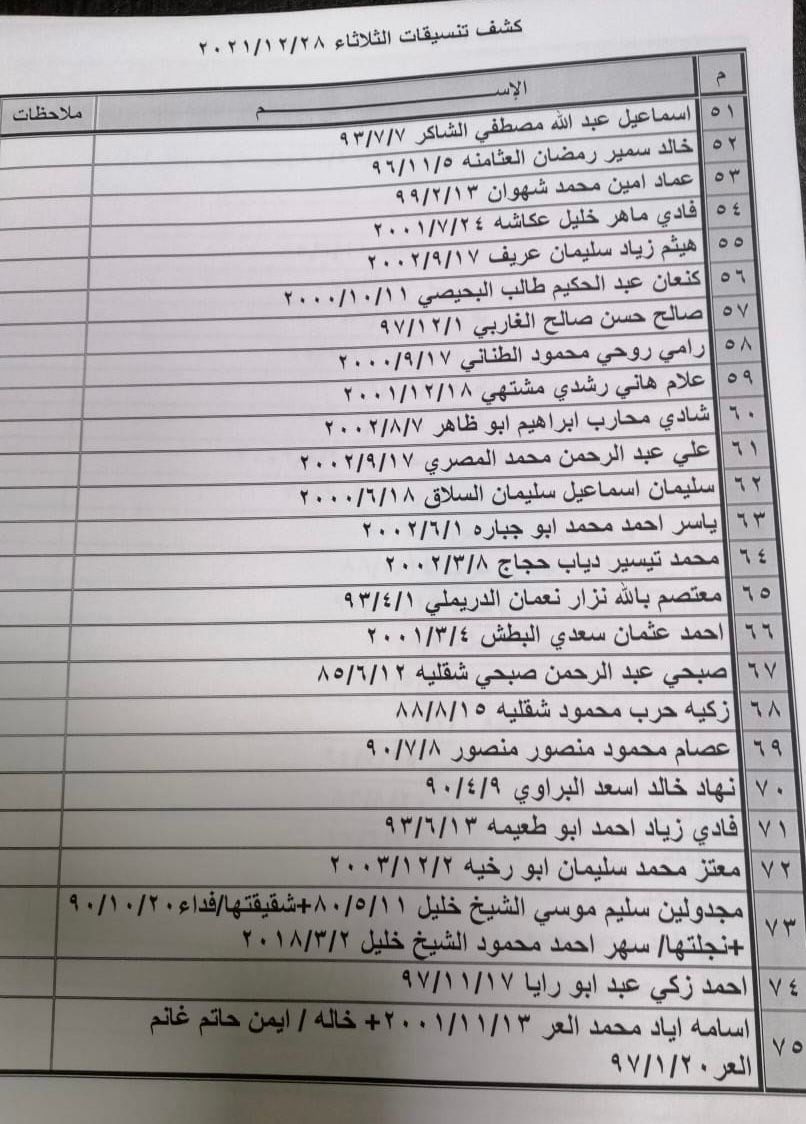 كشف تنسيقات الثلاثاء ٢٠٢١/١٢/٢٨
م الإســـــم ملاحظات
٥١ اسماعيل عبد الله مصطفي الشاكر ٩٣/٧/٧
٥٢ خالد سمير رمضان العثامنه ٩٦/١١/٥
٥٣ عماد امين محمد شهوان ٩٩/٢/١٣
٥٤ فادي ماهر خليل عكاشه ٢٠٠١/٧/٢٤
٥٥ هيثم زياد سليمان عريف ٢٠٠٢/٩/١٧
٥٦ كنعان عبد الحكيم طالب البحيصي ٢٠٠٠/١٠/١١
٥٧ صالح حسن صالح الغاربي ٩٧/١٢/١
٥٨ رامي روحي محمود الطناني ٢٠٠٠/٩/١٧
٥٩ علام هاني رشدي مشتهي ٢٠٠١/١٢/١٨
٦٠ شادي محارب ابراهيم ابو ظاهر ٢٠٠٢/٨/٧
٦١ علي عبد الرحمن محمد المصري ٢٠٠٢/٩/١٧
٦٢ سليمان اسماعيل سليمان السلاق ٢٠٠٠/٦/١٨
٦٣ ياسر احمد محمد ابو جباره ٢٠٠٢/٦/١
٦٤ محمد تيسير دياب حجاج ٢٠٠٢/٣/٨
٦٥ معتصم بالله نزار نعمان الدريملي ٩٣/٤/١
٦٦ احمد عثمان سعدي البطش ٢٠٠١/٣/٤
٦٧ صبحي عبد الرحمن صبحي شقليه ٨٥/٦/١٢
٦٨ زكيه حرب محمود شقليه ٨٨/٨/١٥
٦٩ عصام محمود منصور منصور ٩٠/٧/٨
٧٠ نهاد خالد اسعد البراوي ٩٠/٤/٩
٧١ فادي زياد احمد ابو طعيمه ٩٣/٦/١٣
٧٢ معتز محمد سليمان ابو رخيه ٢٠٠٣/١٢/٢
٧٣ مجدولين سليم موسي الشيخ خليل ٨٠/٥/١١+شقيقتها/فداء٩٠/١٠/٢٠
+نجلتها/ سهر احمد محمود الشيخ خليل ٢٠١٨/٣/٢
٧٤ احمد زكي عبد ابو رايا ٩٧/١١/١٧
٧٥ اسامه اياد محمد العر ٢٠٠١/١١/١٣+ خاله / ايمن حاتم غانم
العر٩٧/١/٢٠